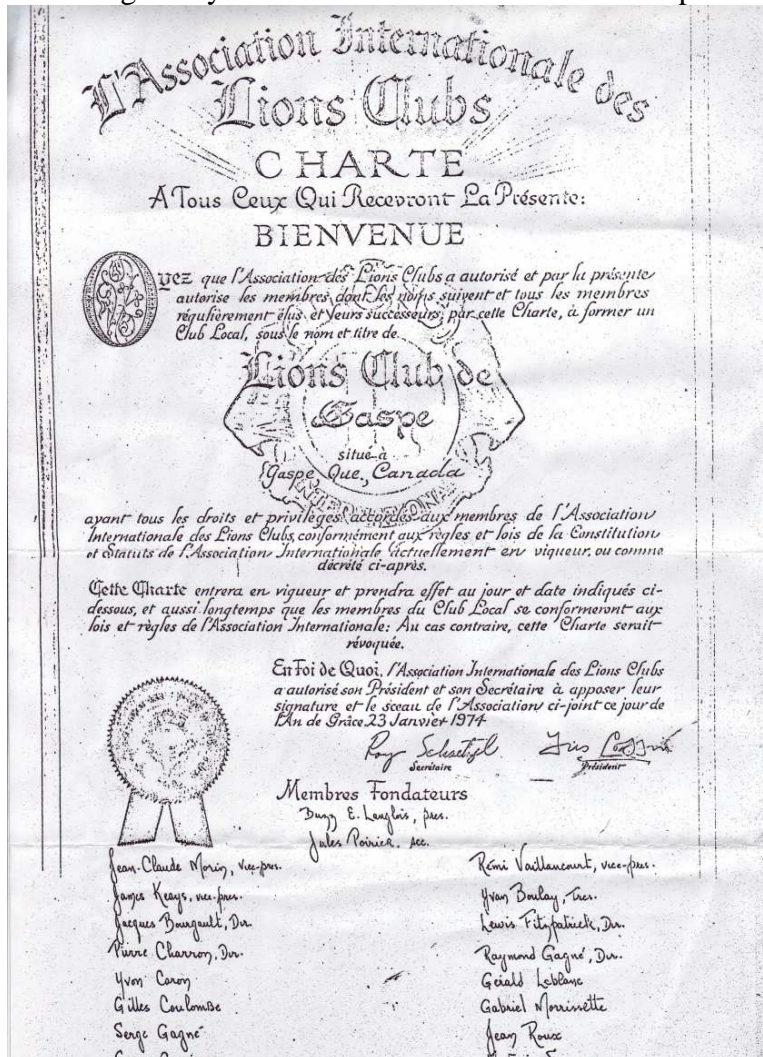 L'Association Internationale des
Lions Clubs
CHARTE
A Tous Ceux Qui Recevront La Présente:
BIENVENUE
Oyez que l'Association des Lions Clubs a autorisé et par la présente
autorise les membres dont les noms suivent et tous les membres
régulièrement élus et leurs successeurs, par cette Charte, à former un
Club Local, sous le nom et titre de
Lions Club de
Gaspe
situé à
Gaspe, Que., Canada
ayant tous les droits et privilèges accordés aux membres de l'Association
Internationale des Lions Clubs, conformément aux règles et lois de la Constitution
et Statuts de l'Association Internationale actuellement en vigueur, ou comme
décrété ci-après.
Cette Charte entrera en vigueur et prendra effet au jour et date indiqués ci-
dessous, et aussi longtemps que les membres du Club Local se conformeront aux
lois et règles de l'Association Internationale: Au cas contraire, cette Charte serait
révoquée.
En Foi de Quoi, l'Association Internationale des Lions Clubs
a autorisé son Président et son Secrétaire à apposer leur
signature et le sceau de l'Association ci-joint ce jour de
l'An de Grâce 23 Janvier 1974
Roy
Secrétaire
Président
Membres Fondateurs
E. Langlois, pres.
Jules Poirier, sec.
Jean-Claude Morin, vice-pres.
Rémi Vaillancourt, vice-pres.
James Keays, vice-pres.
Yvan Boulay, Tres.
Jacques Bourgault, Dir.
Lewis Fitzpatrick, Dir.
Pierre Charron, Dir.
Raymond Gagné, Dir.
Yvon Caron
Gérald Leblanc
Gilles Coulombe
Gabriel Morrissette
Serge Gagné
Jean Roux